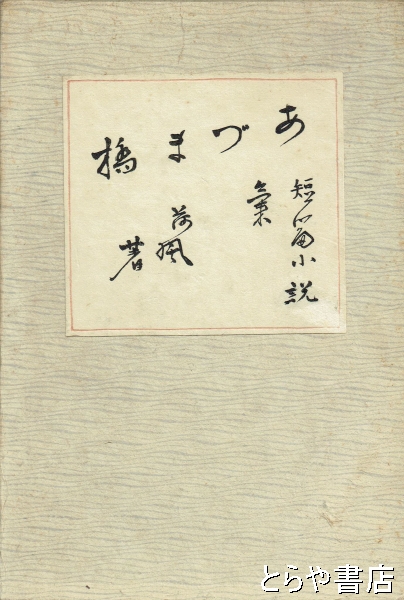 あづま橋
短篇小説
集
荷風
著
とらや書店